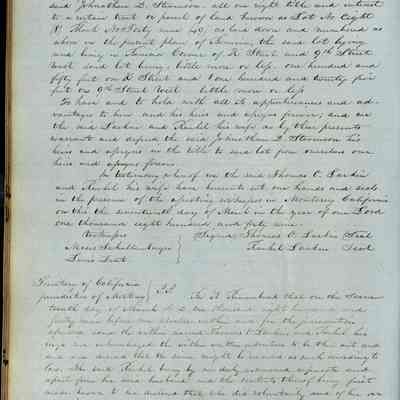 said Johnathan D. Stevenson. all our right title and interest
to a certain tract or parcel of land known as Lot No Eight
(8) Block No Forty nine 49, as laid down and numbered as
above on the present plan of the said lot lying
and being in Corner of K Street and 9th Street
West said lot being, little more or less, one hundred and
fifty feet on K Street and One hundred and twenty five
feet on 9th Street West little more or less
To have and to hold with all its appurtenances and ad-
vantages to him and his heirs and assigns forever; and we
the said Larkin and Rachel his wife as by these presents
warrant and defend the said Johnathan D. Stevenson his
heirs and assigns in the title to said lot from ourselves our
heirs and assigns forever
In testimony whereof we the said Thomas O. Larkin
and Rachel his wife have hereunto set our hands and seals
in the presence of the attesting witnesses in Monterey California
on this the seventeenth day of March in the year of our Lord
one thousand eight hundred and forty nine.
Witnesses Signed Thomas O. Larkin Seal
Moses Schallenberger Rachel Larkin Seal
Lewis Dent
Territory of California
jurisdiction of Monterey } SS. Be it Remembered that on the Seven
teenth day of March A D one thousand eight hundred and
forty nine before me
aforesaid came the within named Thomas O Larkin and Rachel his
wife and acknowledged the within written to be their act and
and desired that the same might be recorded as such according to
law. The said Rachel being by me duly examined separate and
apart from her said husband and the contents thereof being first
made known to her declared that she did voluntarily and of her own